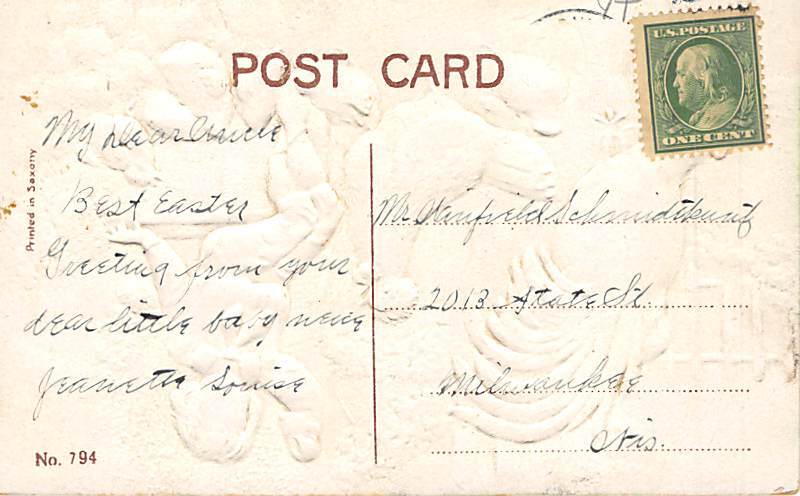 POST CARD
U.S. POSTAGE
ONE CENT
Printed in Saxony
My Dear Uncle
Best Easter
Greeting from your
dear little baby niece
Jeanette Louise
No. 794
Mr. Winfield Schmidtkunz
2013 State St.
Milwaukee
Wis.